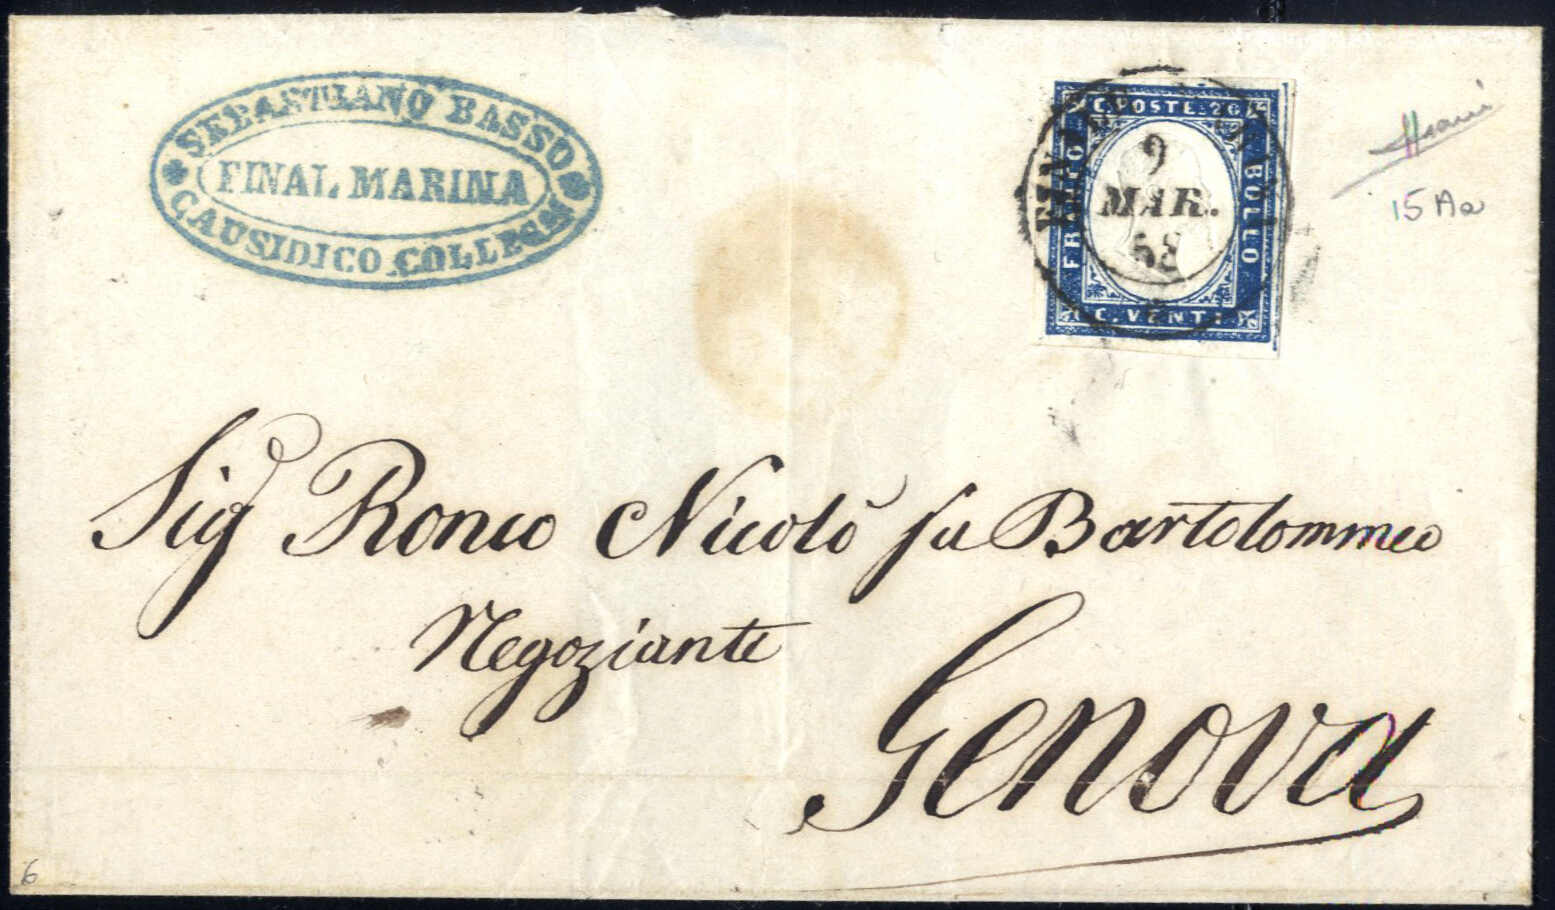 SEBASTIANO BASSO
FINAL MARINA
CAUSIDICO COLLEG
C. POSTE 20
FRANCO
BOLLO
C. VENTI
9
MAR.
58
15 Aa
Sigr Ronco Nicolò fu Bartolommeo
Negoziante
Genova
6